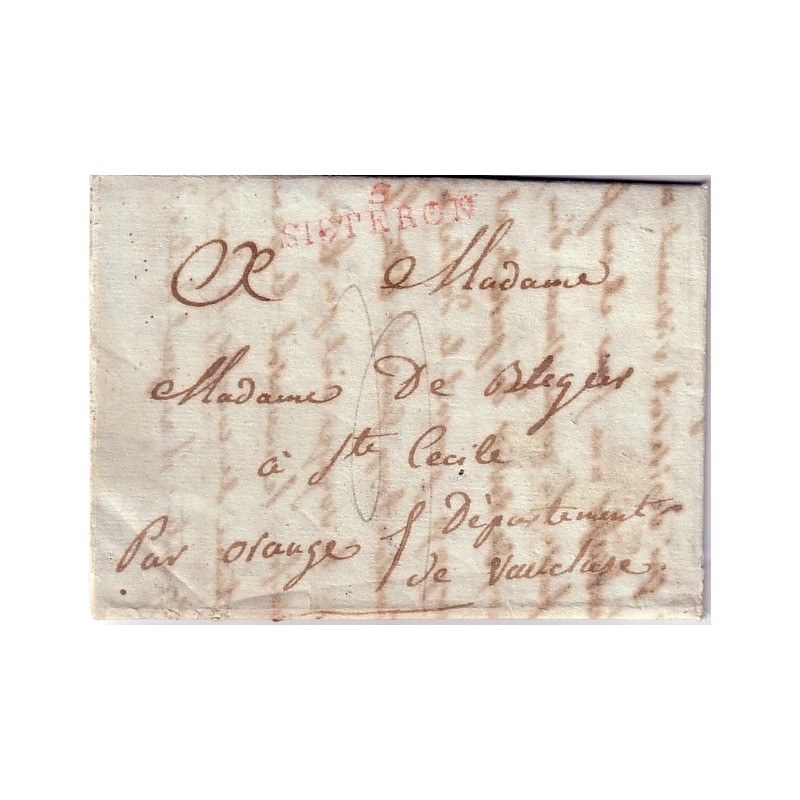 3
SISTERON
A Madame
Madame De Blegier
à Ste Cecile
Par orange / Département
de Vaucluse.